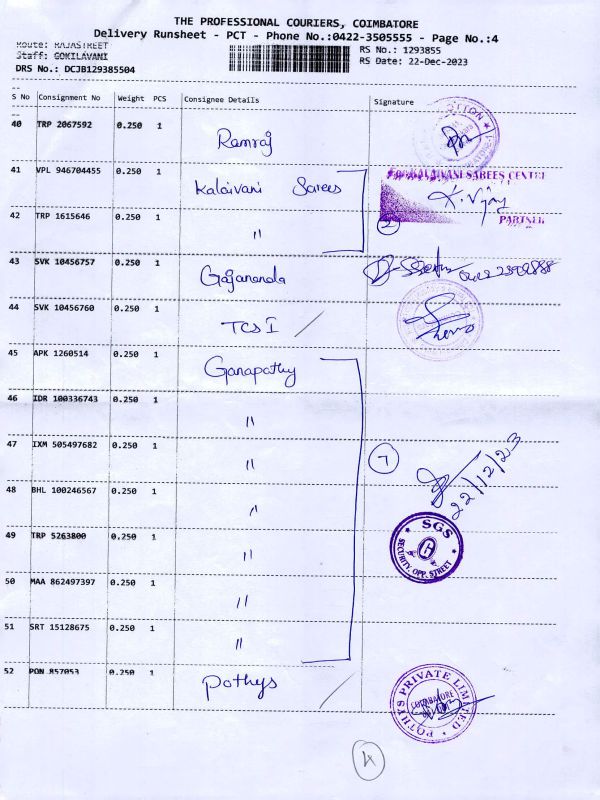 THE PROFESSIONAL COURIERS, COIMBATORE
Delivery Runsheet - PCT - Phone No.:0422-3505555 - Page No.:4
Route: RAJASTREET
Staff: GOKILAVANI
DRS No.: DCJB129385504
RS No.: 1293855
RS Date: 22-Dec-2023
S No Consignment No Weight PCS Consignee Details Signature
40 TRP 2067592 0.250 1 Ramraj
41 VPL 946704455 0.250 1 Kalaivani Sarees
KALAIVANI SAREES CENTRE
K. Vijay
PARTNER
42 TRP 1615646 0.250 1 "
2
43 SVK 10456757 0.250 1 Gajananda
44 SVK 10456760 0.250 1 TCS I
45 APK 1260514 0.250 1 Ganapathy
46 IDR 100336743 0.250 1 "
47 IXM 505497682 0.250 1 "
7
22/12/23
48 BHL 100246567 0.250 1 "
49 TRP 5263800 0.250 1 "
SGS
G
SECURITY, OPP. STREET
50 MAA 862497397 0.250 1 "
51 SRT 15128675 0.250 1 "
52 PON 857053 0.250 1 Pothys
POTHYS PRIVATE LIMITED
COIMBATORE